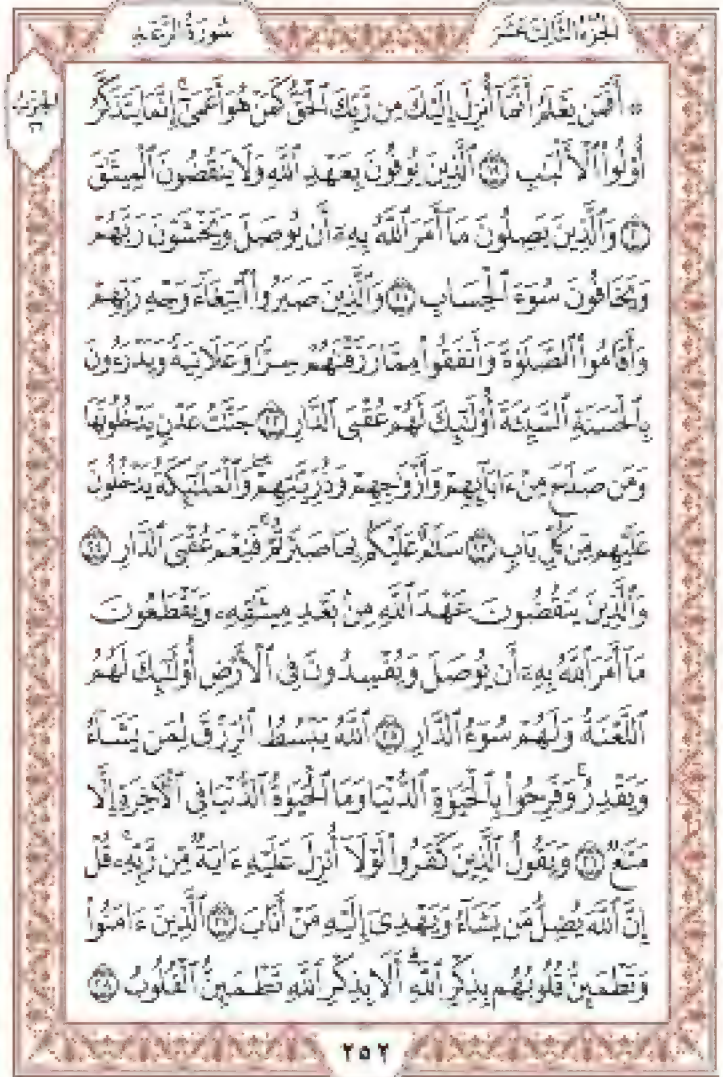 الجزء الثالث عشر
سورة الرعد
الحزب
٢٦
۞ أَفَمَن يَعْلَمُ أَنَّمَآ أُنزِلَ إِلَيْكَ مِن رَّبِّكَ ٱلْحَقُّ كَمَنْ هُوَ أَعْمَىٰٓ إِنَّمَا يَتَذَكَّرُ
أُو۟لُوا۟ ٱلْأَلْبَٰبِ ١٩ ٱلَّذِينَ يُوفُونَ بِعَهْدِ ٱللَّهِ وَلَا يَنقُضُونَ ٱلْمِيثَٰقَ
٢٠ وَٱلَّذِينَ يَصِلُونَ مَآ أَمَرَ ٱللَّهُ بِهِۦٓ أَن يُوصَلَ وَيَخْشَوْنَ رَبَّهُمْ
وَيَخَافُونَ سُوٓءَ ٱلْحِسَابِ ٢١ وَٱلَّذِينَ صَبَرُوا۟ ٱبْتِغَآءَ وَجْهِ رَبِّهِمْ
وَأَقَامُوا۟ ٱلصَّلَوٰةَ وَأَنفَقُوا۟ مِمَّا رَزَقْنَٰهُمْ سِرًّا وَعَلَانِيَةً وَيَدْرَءُونَ
بِٱلْحَسَنَةِ ٱلسَّيِّئَةَ أُو۟لَٰٓئِكَ لَهُمْ عُقْبَى ٱلدَّارِ ٢٢ جَنَّٰتُ عَدْنٍ يَدْخُلُونَهَا
وَمَن صَلَحَ مِنْ ءَابَآئِهِمْ وَأَزْوَٰجِهِمْ وَذُرِّيَّٰتِهِمْ ۖ وَٱلْمَلَٰٓئِكَةُ يَدْخُلُونَ
عَلَيْهِم مِّن كُلِّ بَابٍ ٢٣ سَلَٰمٌ عَلَيْكُم بِمَا صَبَرْتُمْ ۚ فَنِعْمَ عُقْبَى ٱلدَّارِ ٢٤
وَٱلَّذِينَ يَنقُضُونَ عَهْدَ ٱللَّهِ مِنۢ بَعْدِ مِيثَٰقِهِۦ وَيَقْطَعُونَ
مَآ أَمَرَ ٱللَّهُ بِهِۦٓ أَن يُوصَلَ وَيُفْسِدُونَ فِى ٱلْأَرْضِ أُو۟لَٰٓئِكَ لَهُمُ
ٱللَّعْنَةُ وَلَهُمْ سُوٓءُ ٱلدَّارِ ٢٥ ٱللَّهُ يَبْسُطُ ٱلرِّزْقَ لِمَن يَشَآءُ
وَيَقْدِرُ ۚ وَفَرِحُوا۟ بِٱلْحَيَوٰةِ ٱلدُّنْيَا وَمَا ٱلْحَيَوٰةُ ٱلدُّنْيَا فِى ٱلْءَاخِرَةِ إِلَّا
مَتَٰعٌ ٢٦ وَيَقُولُ ٱلَّذِينَ كَفَرُوا۟ لَوْلَآ أُنزِلَ عَلَيْهِ ءَايَةٌ مِّن رَّبِّهِۦ ۗ قُلْ
إِنَّ ٱللَّهَ يُضِلُّ مَن يَشَآءُ وَيَهْدِىٓ إِلَيْهِ مَنْ أَنَابَ ٢٧ ٱلَّذِينَ ءَامَنُوا۟
وَتَطْمَئِنُّ قُلُوبُهُم بِذِكْرِ ٱللَّهِ ۗ أَلَا بِذِكْرِ ٱللَّهِ تَطْمَئِنُّ ٱلْقُلُوبُ ٢٨
٢٥٢